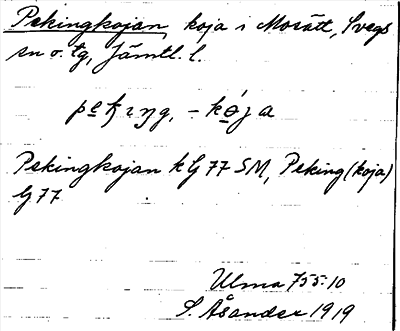 Pekingkojan, koja i Mosätt, Svegs
sn o. tg, Jämtl. l.
pekıŋg, – kǿja
Pekingkojan k G 77 SM, Peking(koja)
G 77
Ulma 755:10
S. Åsander 1919